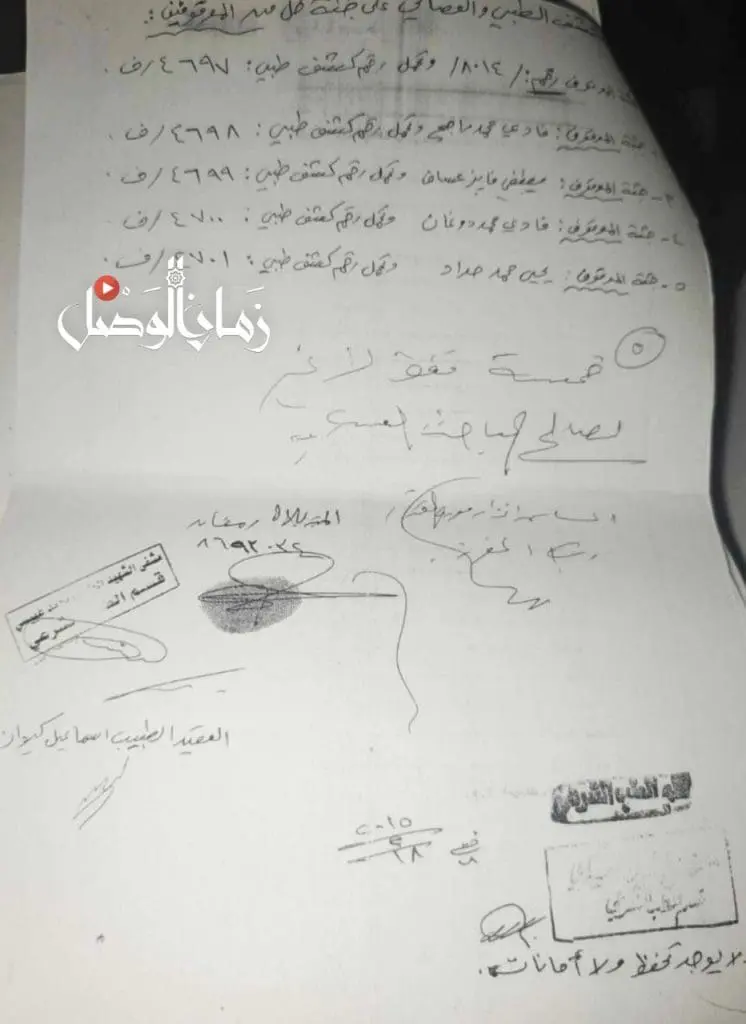 الطبي والقضائي على جثة كل من الموقوفين:
الموقوف رقم: /٨٠١٤/ وتحمل رقم كشف طبي: ٤٦٩٧/ف.
جثة الموقوف: فادي محمد وتحمل رقم كشف طبي: ٤٦٩٨/ف.
٣- جثة الموقوف: مصطفى فايز عساف وتحمل رقم كشف طبي: ٤٦٩٩/ف.
٤- جثة الموقوف: فادي محمد دوغان وتحمل رقم كشف طبي: ٤٧٠٠/ف.
٥- جثة الموقوف: يحيى محمد حداد وتحمل رقم كشف طبي: ٤٧٠١/ف.
زمان الوصل
٥ خمسة فقط لا غير
لصالح المباحث العسكرية
رمضان
٨٦٩٢٠٣٤
مشفى الشهيد
قسم
العقيد الطبيب اسماعيل كيوان
الطب الشرعي
قسم الطب الشرعي
٢٠١٥
٢٨
لا يوجد تحفظ ولا أمانات.